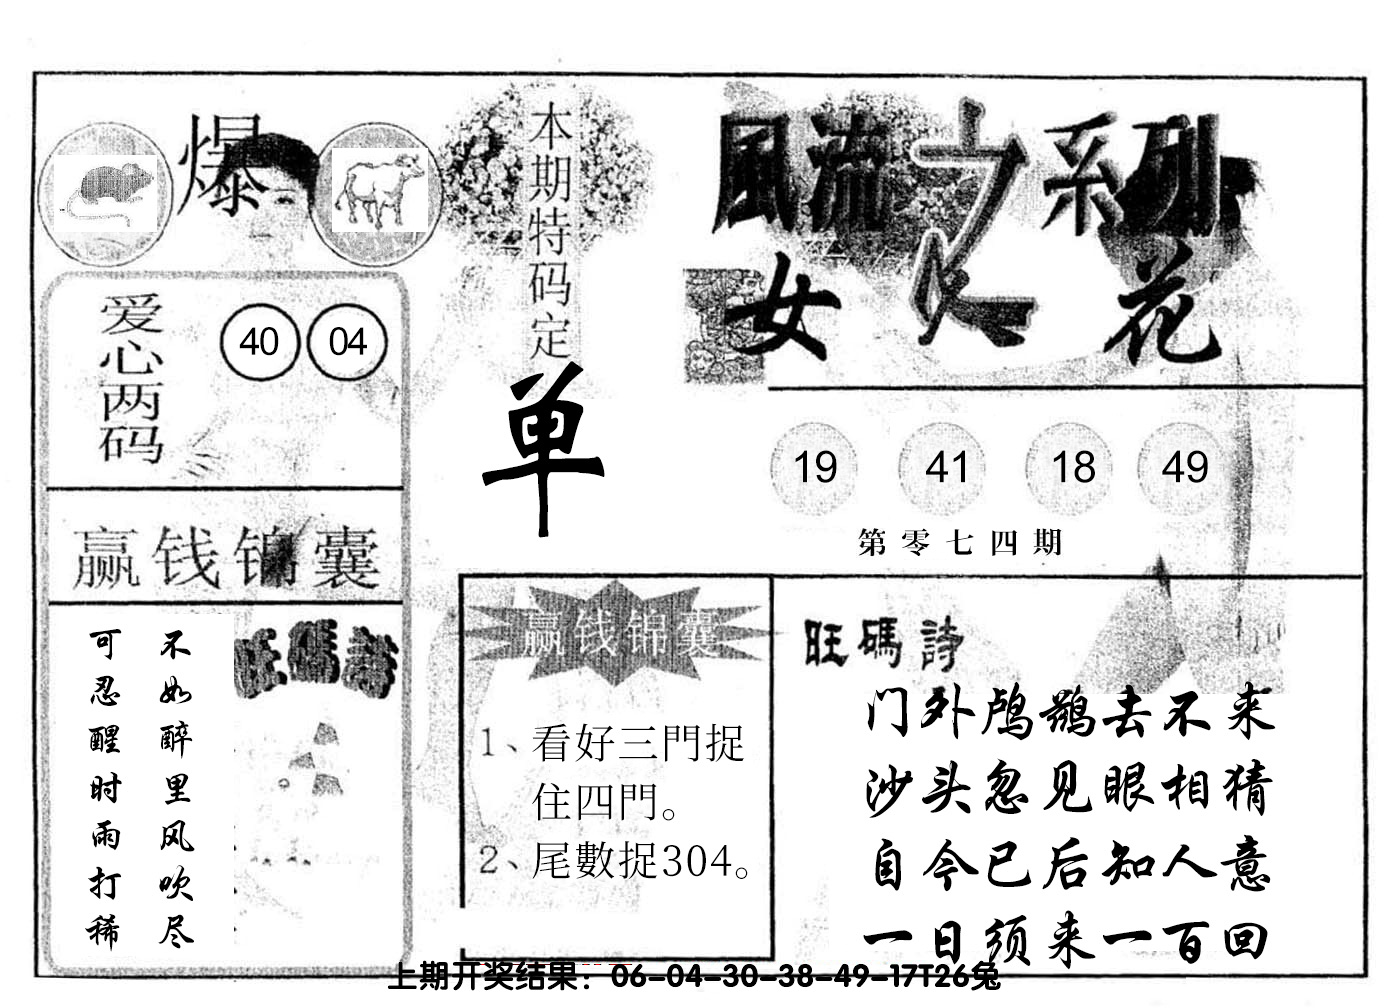 爆
本期特码定
单
風流之系列
女人花
爱心两码
40 04
19 41 18 49
第零七四期
赢钱锦囊
不如醉里风吹尽
可忍醒时雨打稀
旺碼詩
赢钱锦囊
1、看好三門捉
住四門。
2、尾數捉304。
旺碼詩
门外鸬鹚去不来
沙头忽见眼相猜
自今已后知人意
一日须来一百回
上期开奖结果：06-04-30-38-49-17T26兔